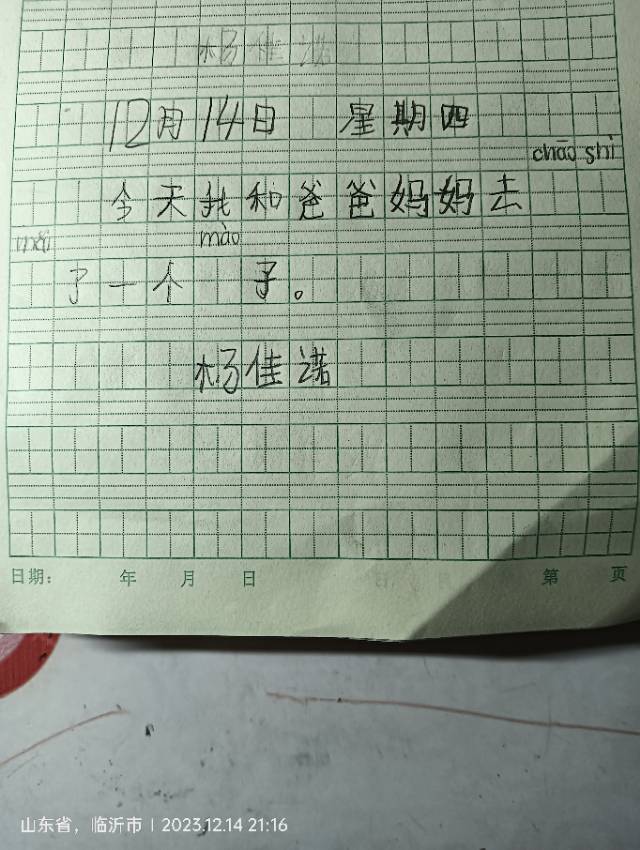 杨佳诺
12月14日 星期四
chāo shì
今天我和爸爸妈妈去
mǎi mào
了一个 子。
杨佳诺
日期: 年 月 日 第 页
山东省，临沂市 | 2023.12.14 21:16